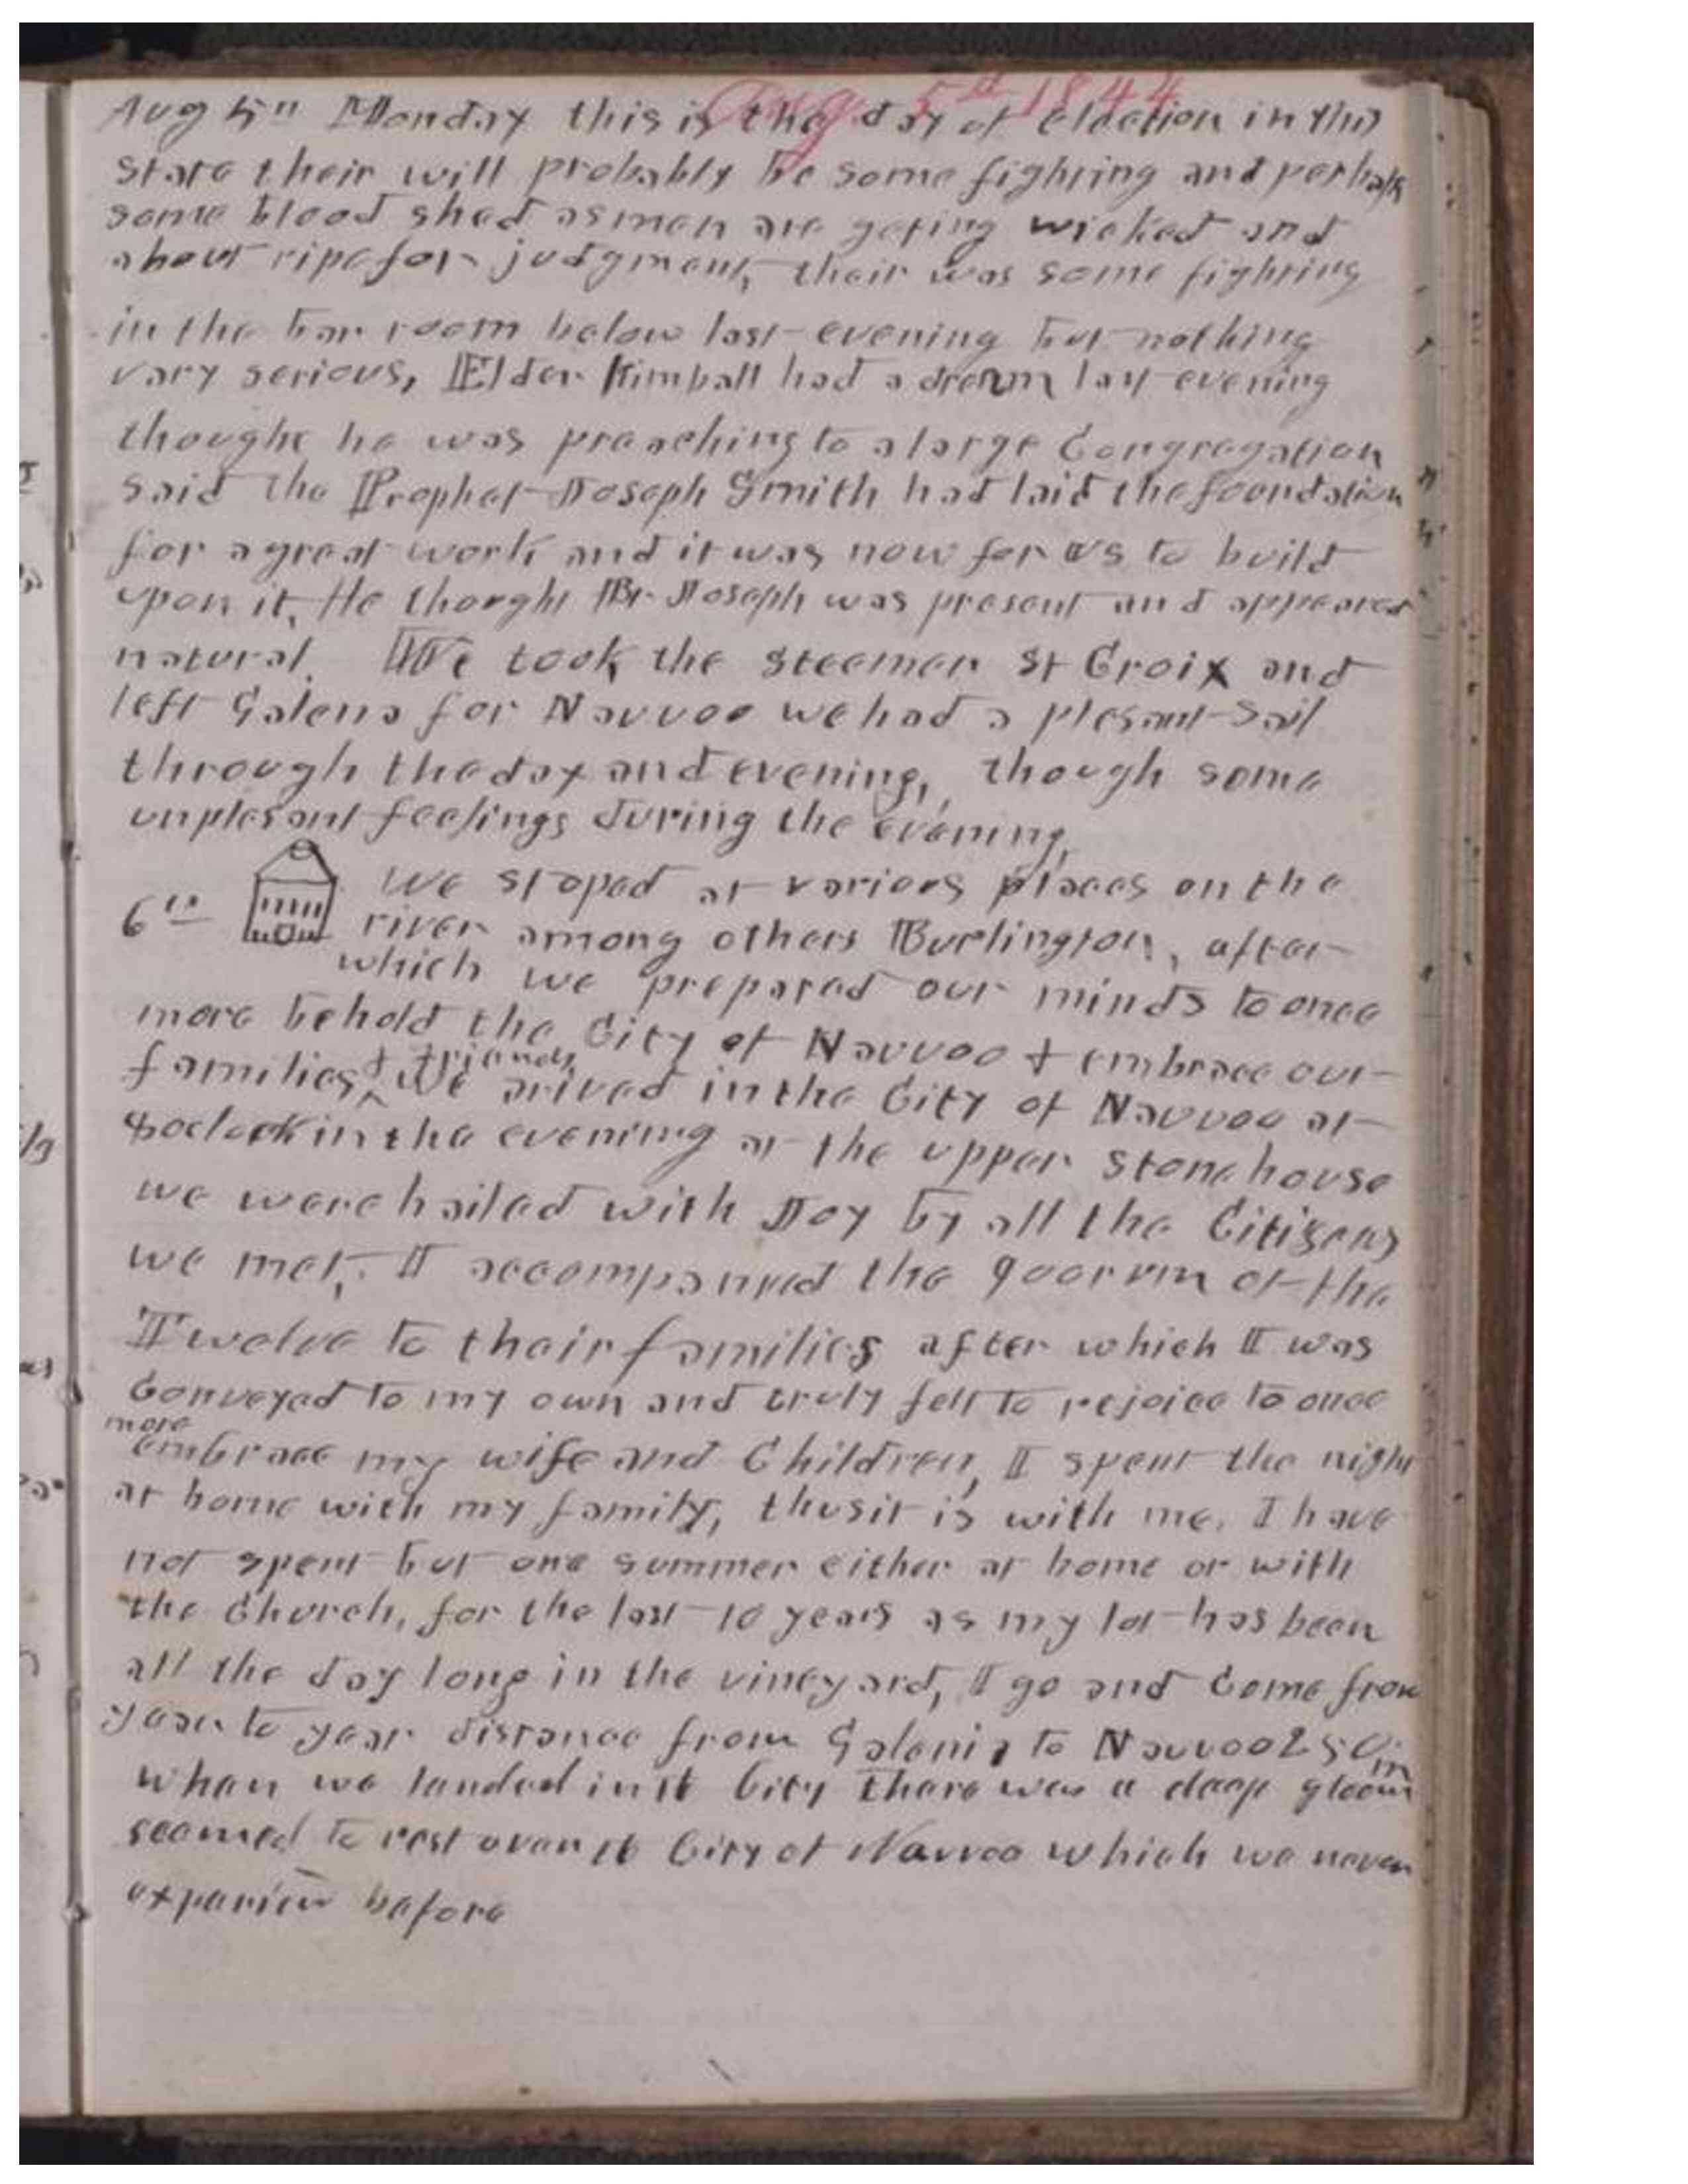 Aug 5th 1844
Aug 5th Monday this is the day of election in this
state their will probably be some fighting and perhaps
some blood shed as men are geting wicked and
about ripe for judgment, their was some fighting
in the bar room below last evening but nothing
vary serious, Elder Kimball had a dream last evening
thought he was preaching to a large Congregation
said the Prophet Joseph Smith had laid the foundation
for a great work and it was now for us to build
upon it, He thought Br Joseph was present and appeared
natural. We took the steemer St Croix and
left Galena for Nauvoo we had a plesant sail
through the day and evening, though some
unplesant feelings during the evening,
6th We stoped at various places on the
river among others Burlington, after
which we prepared our minds to once
more behold the City of Nauvoo & embrace our
families & friends, We arived in the City of Nauvoo at
8 oclock in the evening at the upper stone house
we were hailed with Joy by all the Citizens
we met, I accompanied the quorum of the
Twelve to their families after which I was
Conveyed to my own and truly felt to rejoice to once
more
embrace my wife and Children, I spent the night
at home with my family, thus it is with me, I have
not spent but one summer either at home or with
the Church, for the last 10 years as my lot has been
all the day long in the vineyard, I go and Come from
year to year distance from Galenia to Nauvoo 250 m
when we landed in the City there was a deep gloom
seemed to rest over the City of Nauvoo which we never
experien before